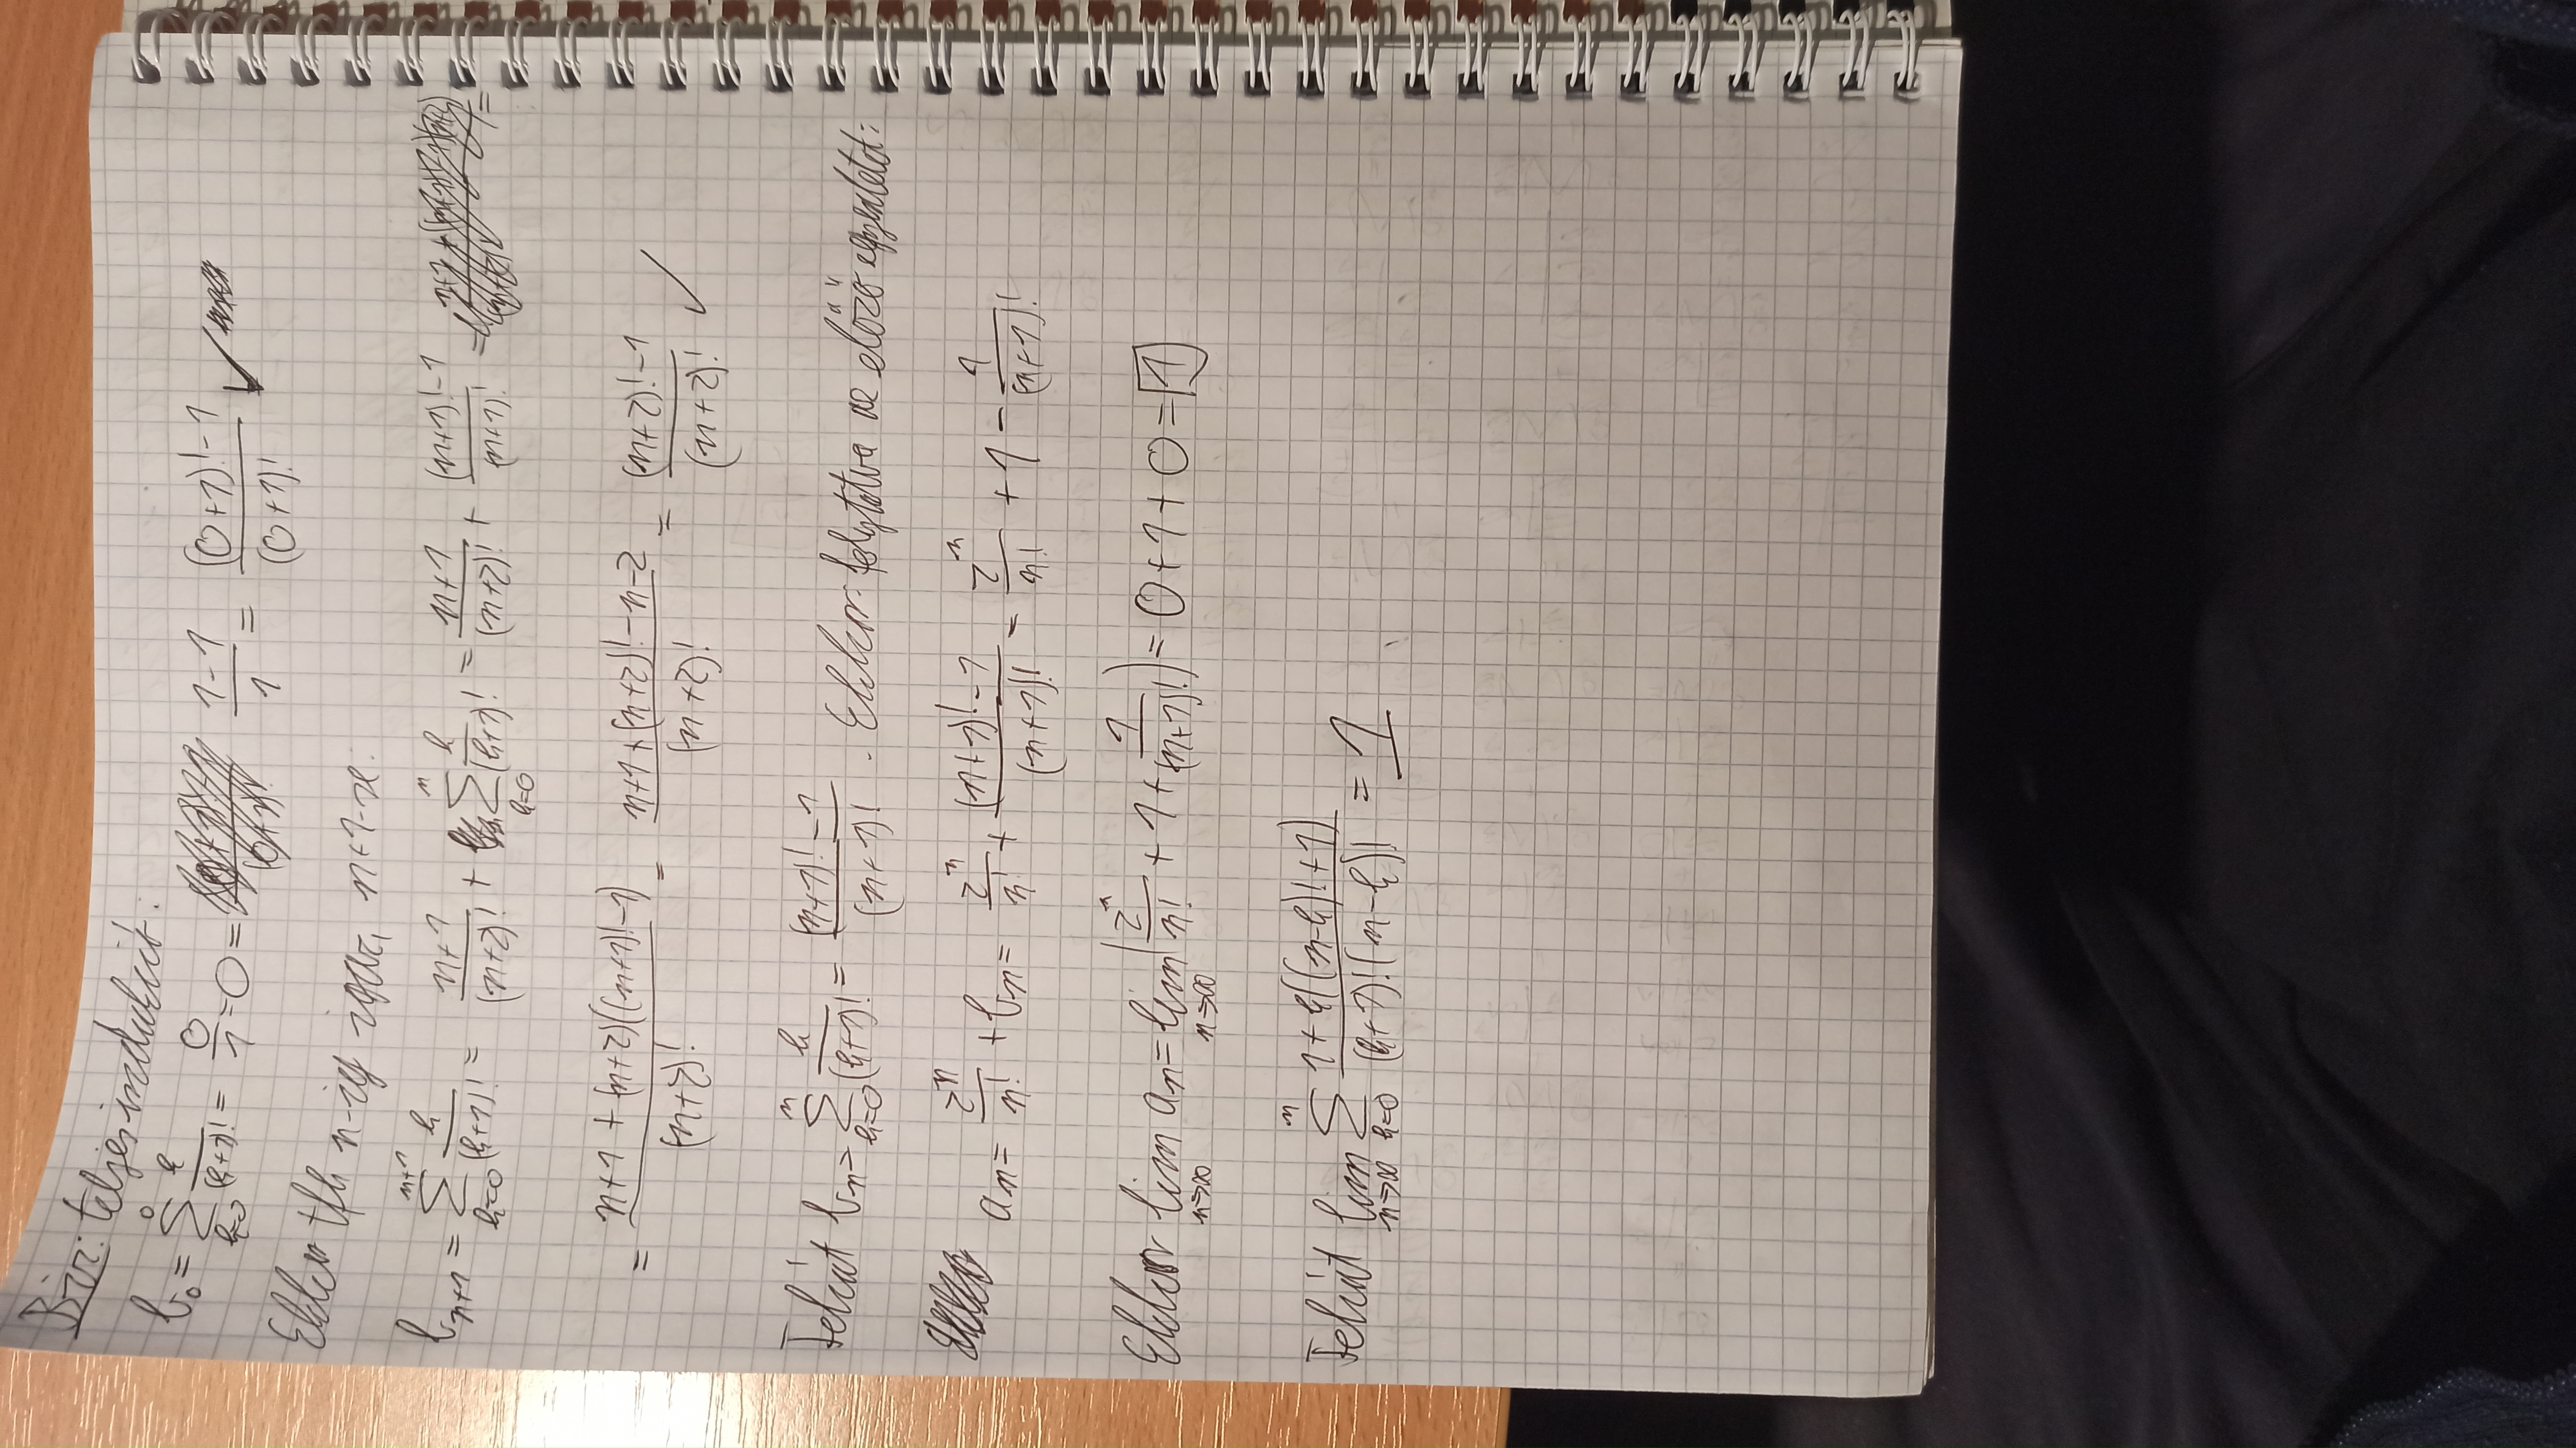 Biz: teljes indukció:
b₀ = ∑_{k=0}^{0} k/(k+1)! = 0/1 = 0 = (1-1)/1 = ((0+1)!-1)/(0+1)! ✓
Ekkor tfh n-ig igaz, n+1-re:
b_{n+1} = ∑_{k=0}^{n+1} k/(k+1)! = (n+1)/(n+2)! + ∑_{k=0}^{n} k/(k+1)! = (n+1)/(n+2)! + ((n+1)!-1)/(n+1)! =
= (n+1+(n+2)((n+1)!-1))/(n+2)! = (n+1+(n+2)!-n-2)/(n+2)! = ((n+2)!-1)/(n+2)! ✓
Tehát b_n = ∑_{k=0}^{n} k/(k+1)! = ((n+1)!-1)/(n+1)! . Ekkor folytatva az előző egyenletet:
a_n = 2ⁿ/n! + b_n = 2ⁿ/n! + ((n+1)!-1)/(n+1)! = 2ⁿ/n! + 1 - 1/(n+1)!
Ekkor lim_{n→∞} a_n = lim_{n→∞} (2ⁿ/n! + 1 + 1/(n+1)!) = 0+1+0 = 1
Tehát lim_{n→∞} ∑_{k=0}^{n} (1+k((n-k)!+1))/((k+1)!(n-k)!) = 1